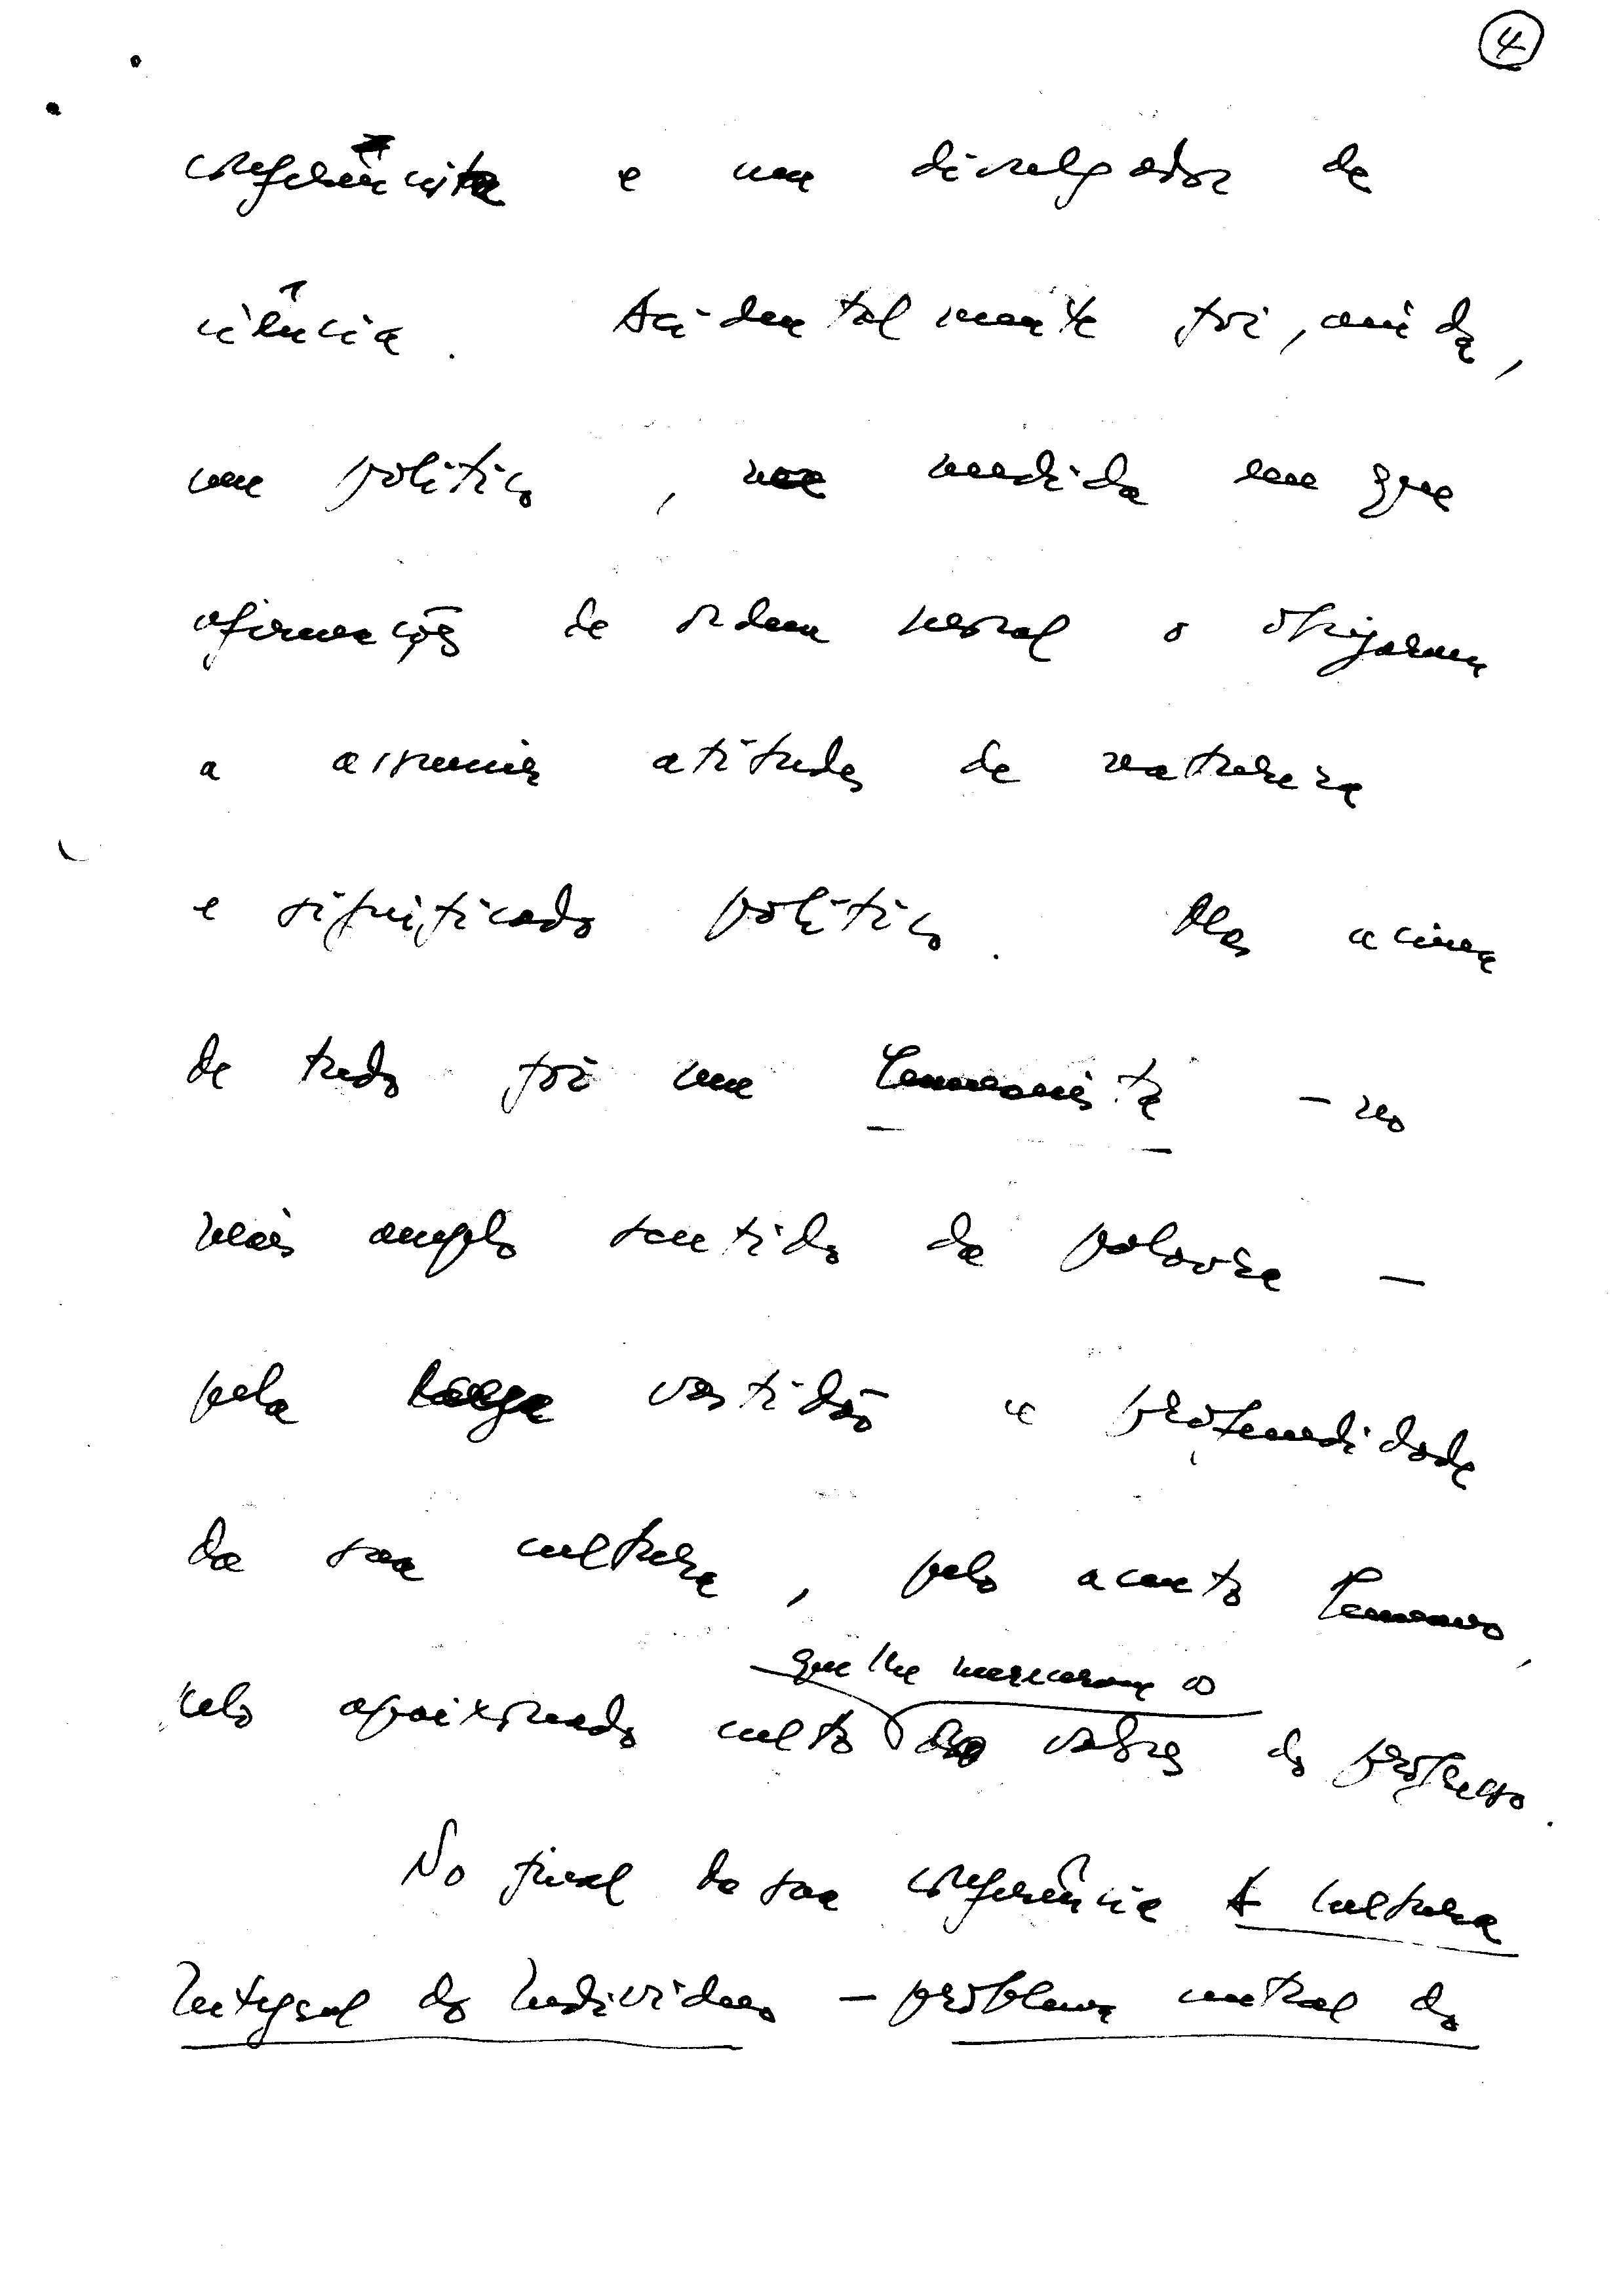 4
conferencista e um divulgador de
ciência. Acidentalmente foi, ainda,
um político, na medida em que
afirmações de ordem moral o obrigaram
a assumir atitudes de natureza
e significado político. Mas acima
de tudo foi um humanista – no
mais amplo sentido da palavra –
pela vastidão e profundidade
da sua cultura, pelo acento humano,
pelo apaixonado culto que lhe mereceram os valores do progresso.
No final da sua conferência A Cultura
Integral do Indivíduo – problema central do